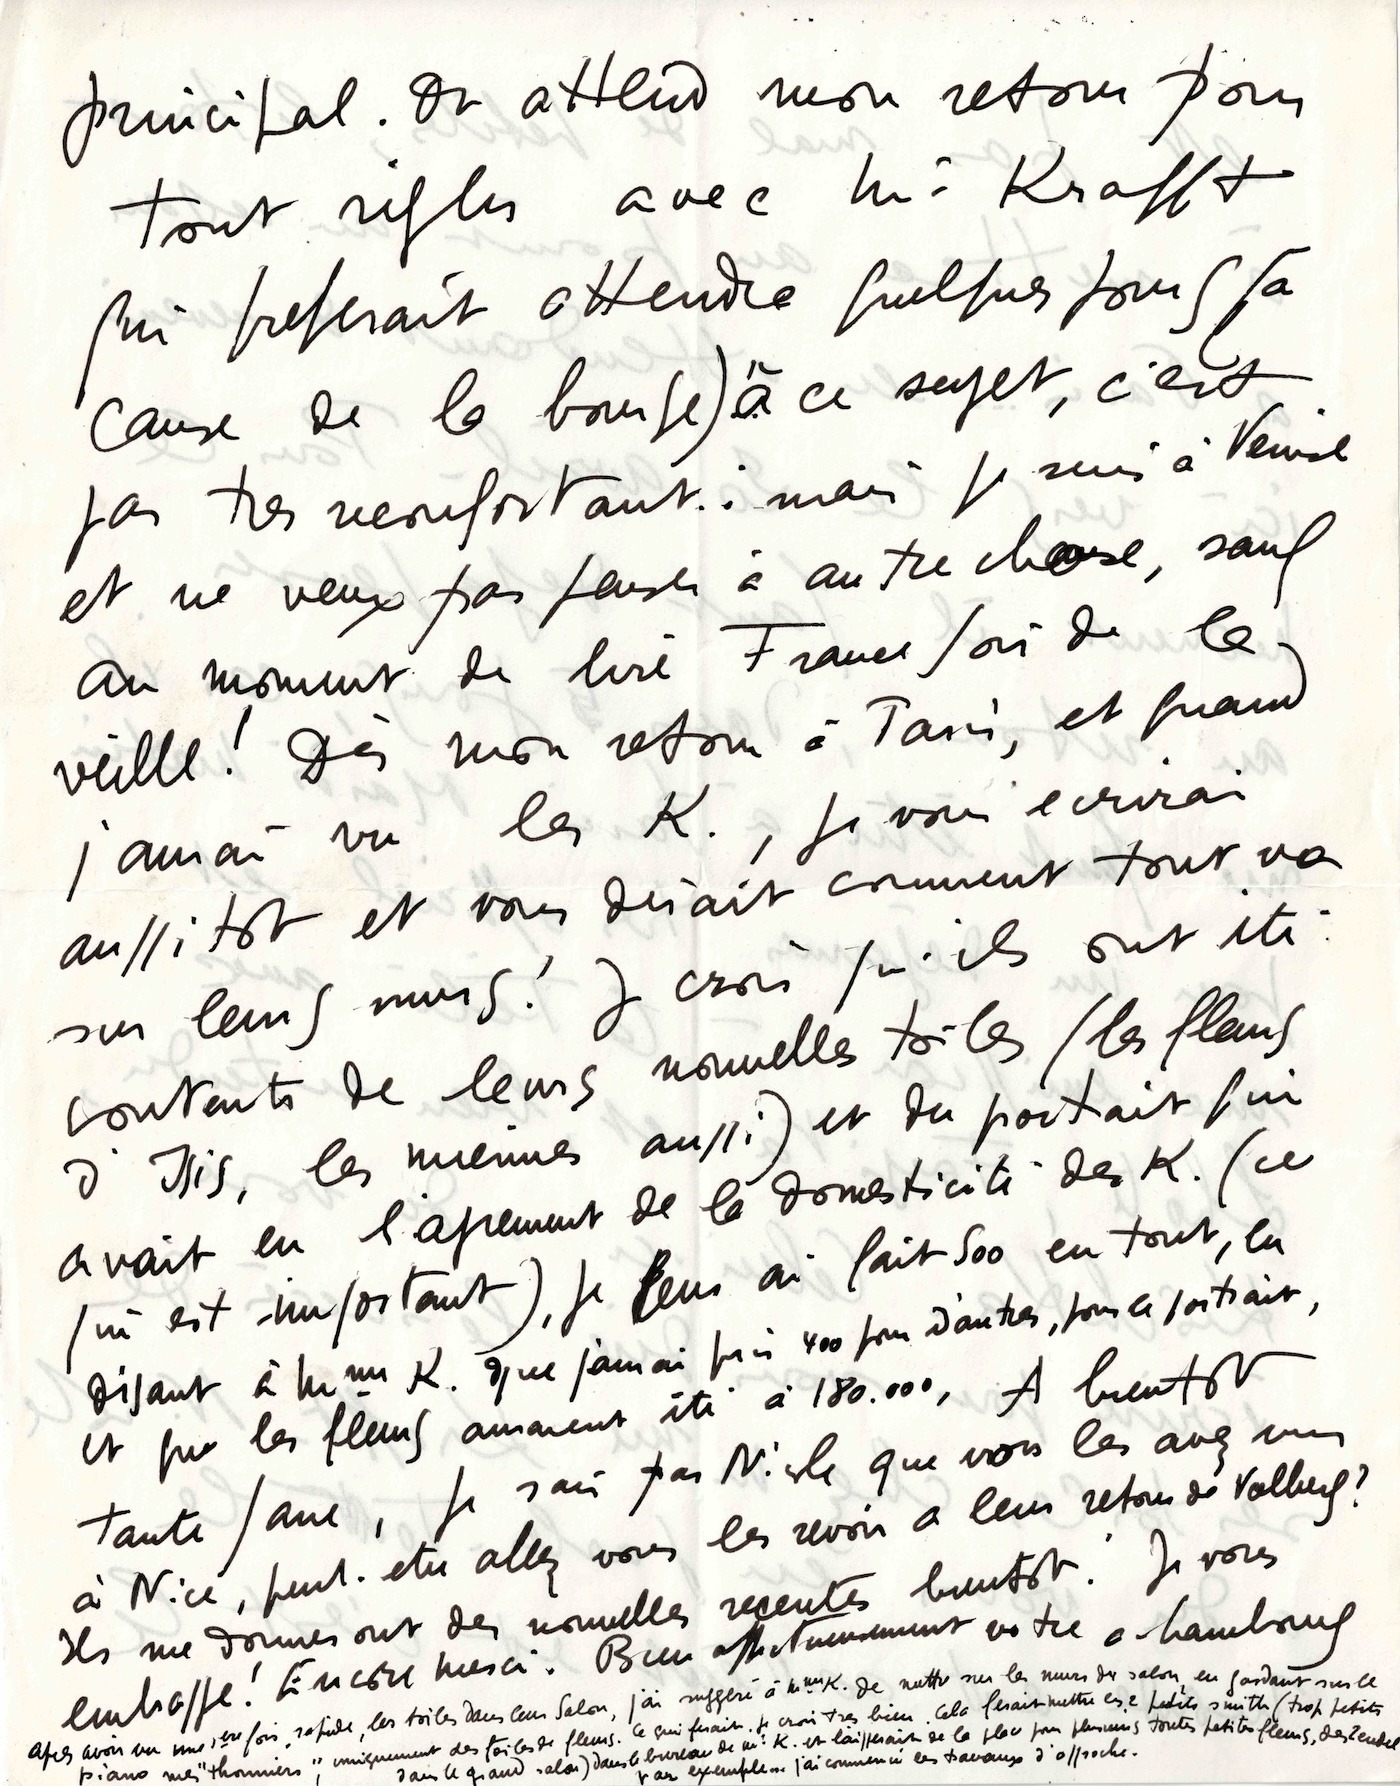 principal. On attend mon retour pour
tout régler avec Mr Krafft
qui préferait attendre quelques jours (à
cause de la bourse) à ce sujet, c'est
pas très réconfortant.. mais je suis à Venise
et ne veux pas penser à autre chose, sauf
au moment de lire France Soir de la
veille! Dès mon retour à Paris, et quand
j'aurai vu les K., je vous ecrirai
aussitôt et vous dirait comment tout va
sur leurs murs! Je crois qu'ils ont été
contents de leurs nouvelles toiles (les fleurs
d'Isis, les miennes aussi) et du portait qui
avait eu l'agrement de la domesticité des K. (ce
qui est important), je leur ai fait 500 en tout, en
disant à Mme K. que j'aurai pris 400 pour d'autres, pour le portrait,
et que les fleurs auraient été à 180.000, A bientôt
tante Jane, je sais par Nicole que vous les avez vus
à Nice, peut-etre allez vous les revoir a leur retour de Valberg?
Ils me donneront des nouvelles recentes bientôt! Je vous
embrasse! Encore merci. Bien affectueusement votre a. hambourg
Apres avoir vu une 1ère fois, rapide, les toiles dans leur Salon, j'ai suggéré à Mme K. de mettre sur les murs du salon, en gardant sur le
piano mes "thonniers", uniquement des toiles de fleurs. Ce qui ferait je crois très bien. Cela ferait mettre les 2 petits smith (trop petits
dans le grand salon) dans le bureau de Mr K. et laisserait de la place pour plusieurs toutes petites fleurs, des Zendel
par exemple.. j'ai commencé les travaux d'approche.